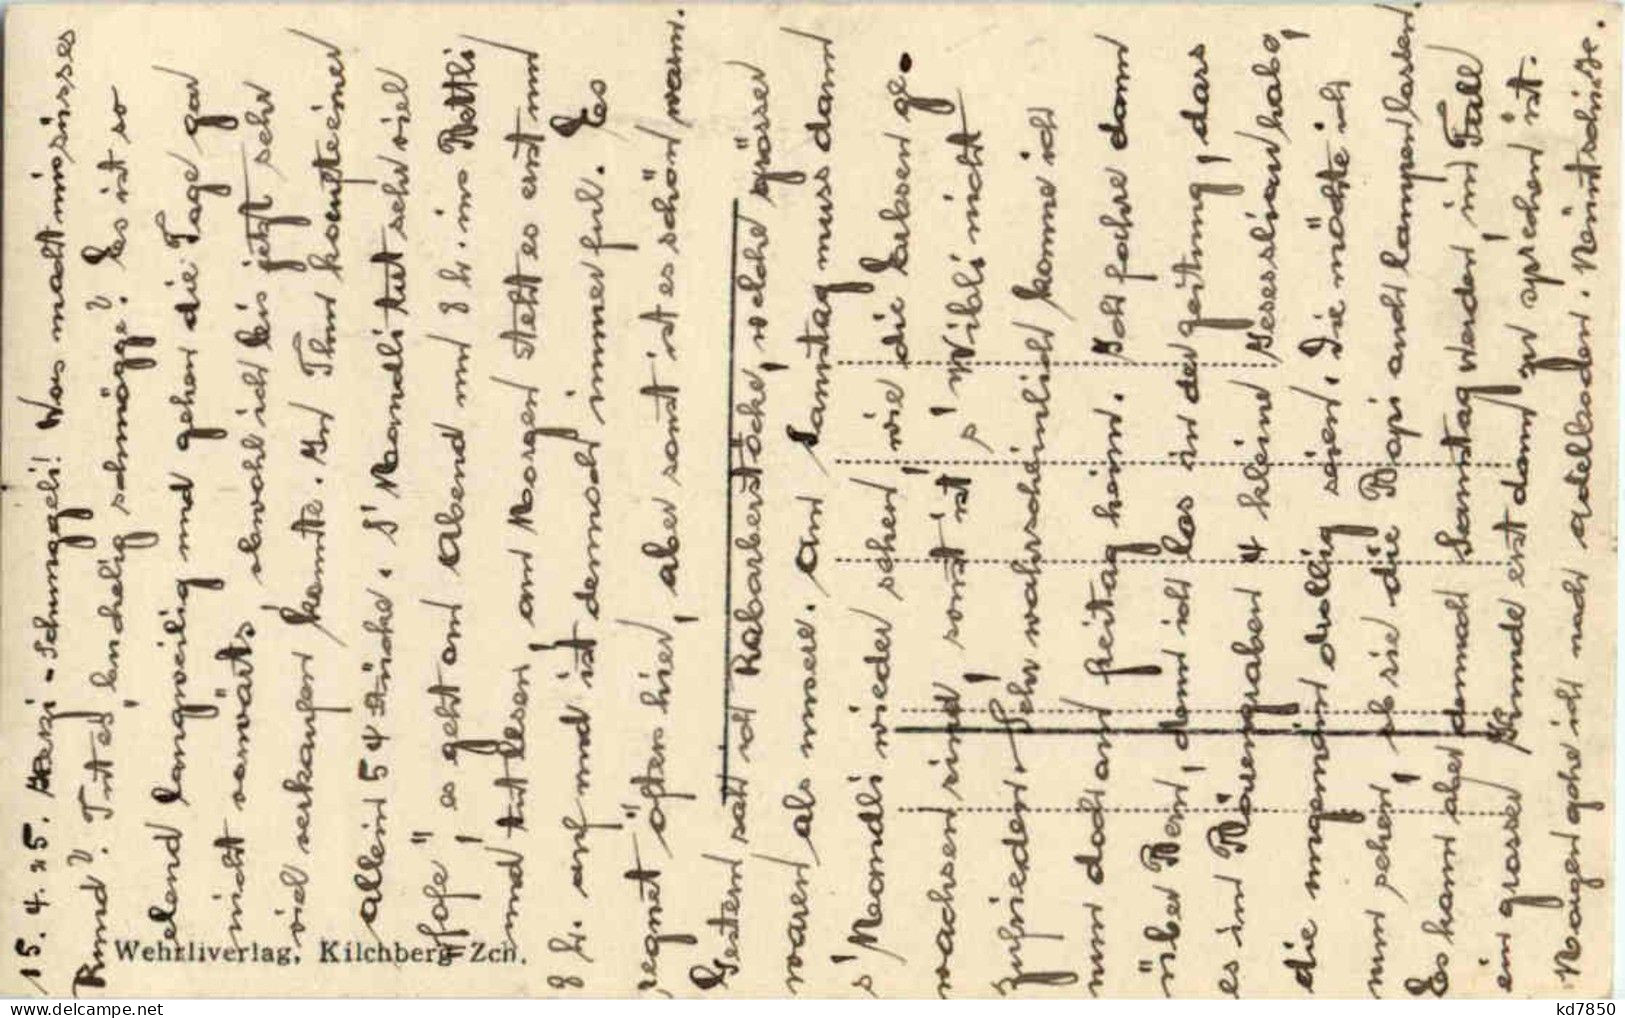 15. 4. 25. Herzi-Schnuggeli! Was macht mis süsses
Rund? Tuet's eichelig schmögge? Es ist so
elend langweilig und gehen die Tage gar
nicht vorwärts, obwohl ich bis jetzt sehr
viel verkaufen konnte. In Thun heute einer
allein 54 Stücke. S' Mandli tut sehr viel
"fofe", es geht am Abend um 8 h. ins Bettli
und tut lesen, am Morgen steht es erst um
8 h. auf und ist dennoch immer ful. Es
regnet öfters hier, aber sonst ist es schön warm.
Gestern sah ich Rabarberstöcke, welche grösser
waren als unsere. Am Samstag muss dann
s' Mandli wieder sehen, wie die Erbsen ge-
wachsen sind, sonst ist s' Wibli nicht
zufrieden. Sehr wahrscheinlich komme ich
nun doch am Freitag heim. Ich fahre dann
über Bern, denn ich las in der Zeitung, dass
es im Bärengraben 4 kleine gegeben habe,
die ungemein drollig seien. Die möchte ich
nun sehen, ob sie die Bäpi auch lampen lassen.
Es kann aber dennoch Samstag werden im Fall
ein grosser Kunde erst dann zu sprechen ist.
Morgen gehe ich nach Adelboden. Müntschi Je.
Wehrliverlag, Kilchberg-Zch.
kd7850